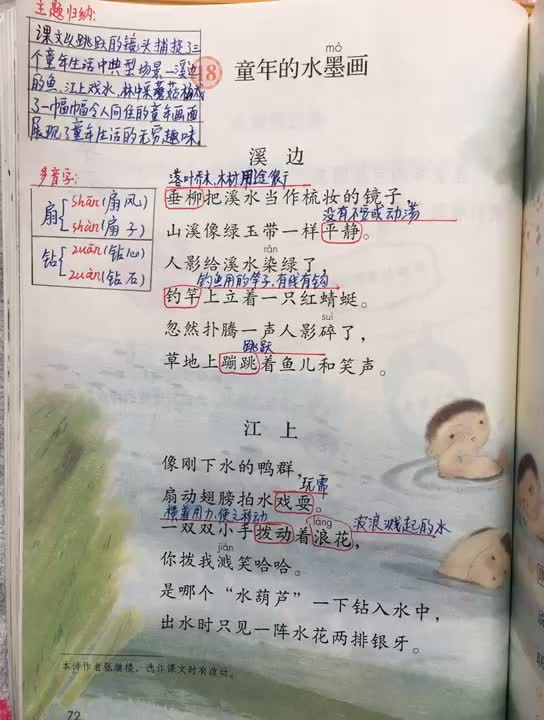 主题归纳:
课文以跳跃的镜头捕捉了三
个童年生活中典型场景—溪边
钓鱼、江上戏水、林中采蘑菇构成
了一幅幅令人向往的童年画面
展现了童年生活的无穷趣味
mò
18 童年的水墨画
溪边
多音字:
扇 shān(扇风)
shàn(扇子)
钻 zuān(钻心)
zuàn(钻石)
落叶乔木,木材用途很广
垂柳把溪水当作梳妆的镜子,
没有不安或动荡
山溪像绿玉带一样平静。
rǎn
人影给溪水染绿了,
钓鱼用的竿子,有线有钩
钓竿上立着一只红蜻蜓。
suì
忽然扑腾一声人影碎了,
跳跃
草地上蹦跳着鱼儿和笑声。
江上
像刚下水的鸭群,
玩耍
扇动翅膀拍水戏耍。
横着用力,使之移动
làng
波浪溅起的水
一双双小手拨动着浪花,
jiàn
你拨我溅笑哈哈。
是哪个“水葫芦”一下钻入水中,
出水时只见一阵水花两排银牙。
本诗作者张继楼,选作课文时有改动。
72